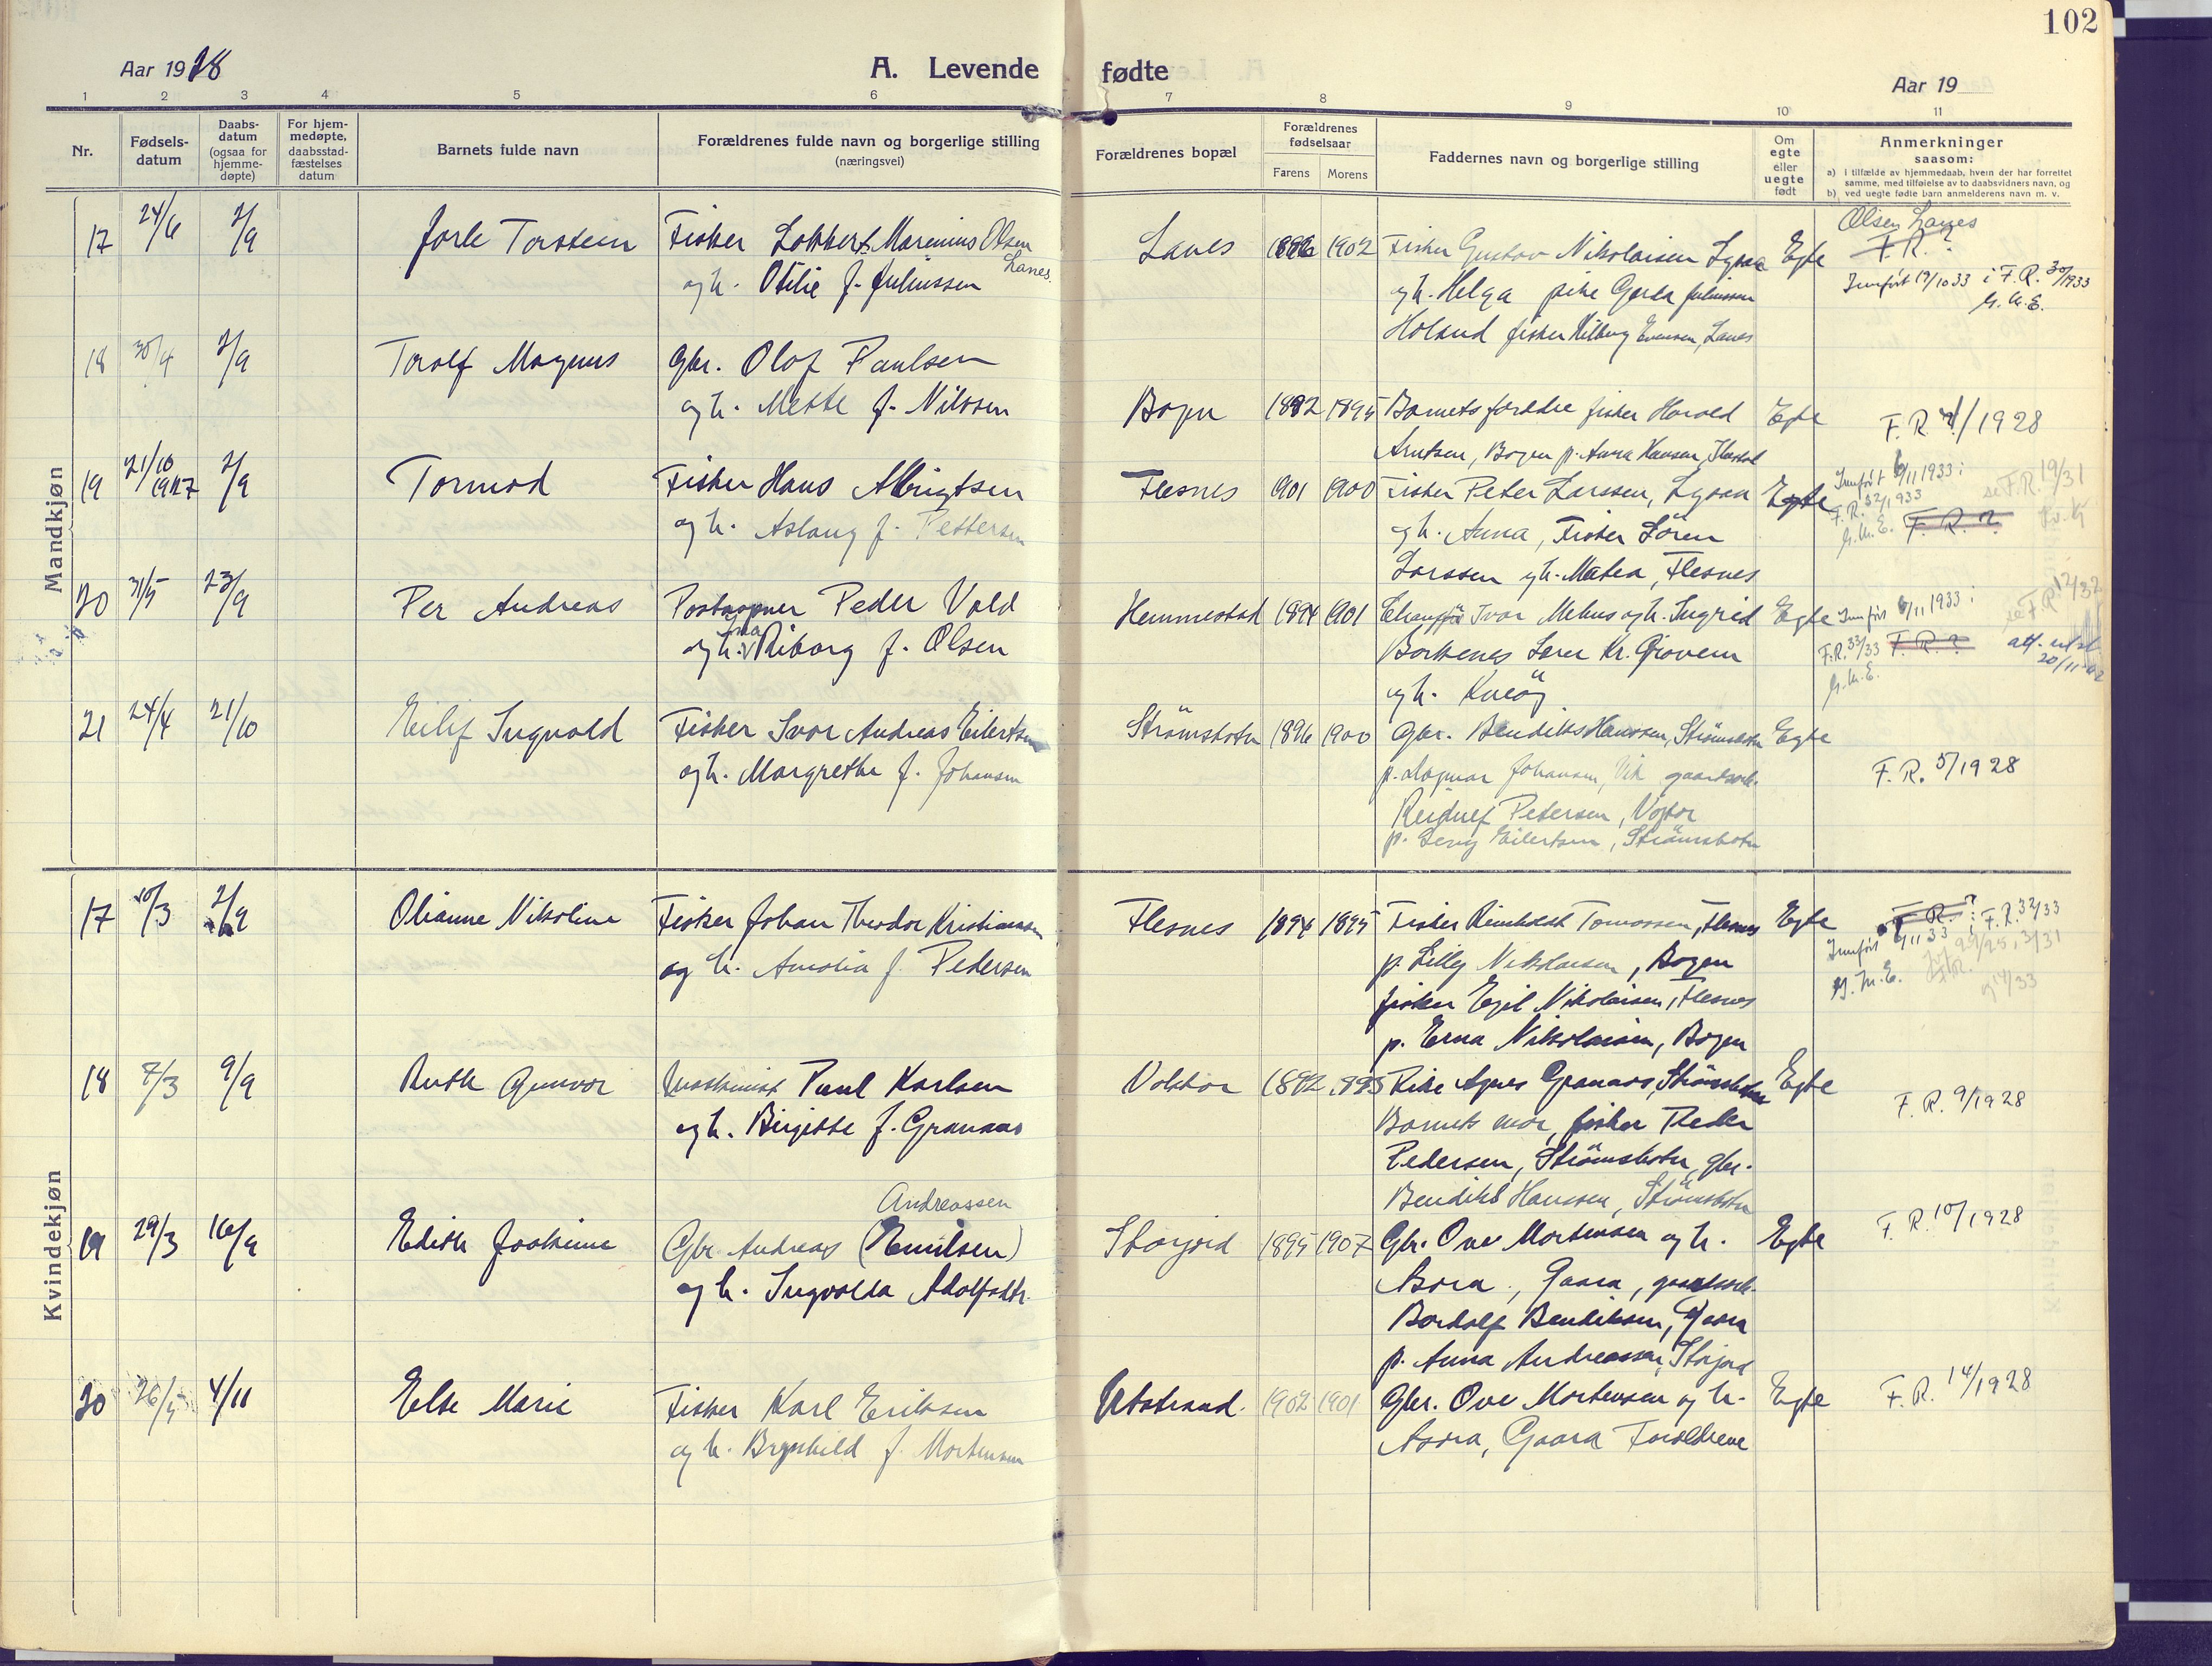 102
Aar 1928
A. Levende fødte
Aar 19
1 2 3 4 5 6 7 8 9 10 11
Nr.
Fødsels-
datum
Daabs-
datum
(ogsaa for
hjemme-
døpte)
For hjem-
medøpte,
daabsstad-
fæstelses
datum
Barnets fulde navn
Forældrenes fulde navn og borgerlige stilling
(næringsvei)
Forældrenes bopæl
Forældrenes
fødselsaar
Farens Morens
Faddernes navn og borgerlige stilling
Om
egte
eller
uegte
født
Anmerkninger
saasom:
a) i tilfælde av hjemmedaab, hvem der har forrettet
samme, med tilføielse av to daabsvidners navn, og
b) ved uegte fødte barn anmelderens navn m. v.
Mandkjøn
17 24/6 2/9 Jarle Torstein Fisker Lokkert Marenius Olsen Lanes 1896 1902 Fisker Gustav Nikolaisen Egte Olsen Lanes
Lanes.
og h. Otilie f. Juliussen og h. Helga pike Gerda Juliussen F. R. ?
Innført 19/10 33 i F. R. 30/1933
G. M. E.
Holand fisker Evensen, Lanes
18 30/4 2/9 Torolf Magnus Gbr. Olaf Paulsen
og h. Mette f. Nilssen Bogen 1892 1895 Barnets foreldre fisker Harald Egte F. R. /1928
Arntsen, Bogen p. Anna Hansen,
19 21/10 1927 2/9 Tormod Fisker Hans Albrigtsen Flesnes 1901 1900 Fisker Peter Larssen, Egte Innført 6/11 1933 i
F. R. 32/1933 se F. R. 19/31
G. M. E. F. R. ?
og h. Aslaug f. Pettersen og h. Anna, Fisker Sören
Larssen og h. Matea, Flesnes
20 31/5 23/9 Per Andreas Postaapner Peder Vold Hemmestad 1894 1901 Ivar Mehus og h. Ingrid Egte Innført 6/11 1933 i se F R 12/32
og h. Riborg f. Olsen Borkenes Lærer Kr. F.R. 33/33 F. R. ? att. utst.
20/11
G. M. E.
og h.
21 24/4 21/10 Eilif Ingvald Fisker Ivar Andreas Eilertsen Strömsbotn 1896 1900 Gbr. Bendiks Hanssen, Strömsbotn Egte
og h. Margrethe f. Johansen p. Dagmar Johansen, Vik gaardsarb. F. R. 5/1928
Reidulf Petersen, Voktor
p. Jenny Eilertsen, Strömsbotn
Kvindekjøn
17 10/3 2/9 Olianne Nikoline Fisker Johan Theodor Kristiansen Flesnes 1894 1895 Fisker Reinholdt Tomassen, Flesnes Egte F. R. ? i F. R. 32/33
Innført 6/11 33
G. M. E. 14/33
og h. Amalia f. Pedersen p. Lilly Nikolaisen, Bogen
fisker Egil Nikolaisen, Flesnes
p. Erna Nikolaisen, Bogen
18 7/3 9/9 Ruth Gunvor Maskinist Paul Karlsen Voktor 1892 1895 Pike Agnes Granaas, Strömsbotn Egte F. R. 9/1928
og h. Birgitte f. Granaas Barnets mor, fisker Peder
Pedersen, Strömsbotn, gbr.
Bendiks Hanssen, Strömsbotn
Andreassen
19 29/3 16/9 Edith Joakime Gbr. Andreas (Emilsen) Storjord 1895 1907 Gbr. Ove Mortensen og h. Egte F. R. 10/1928
og h. Ingvalda Adolfsdtr. Asora, Gaara, gaardsarb.
Bordolf Bendiksen, Gaara
p. Anna Andreassen, Storjord
20 26/5 4/11 Else Marie Fisker Karl Eriksen Utstrand. 1902 1901 Gbr. Ove Mortensen og h. Egte F. R. 14/1928
og h. Brynhild f. Mortensen Asora, Gaara Foreldrene